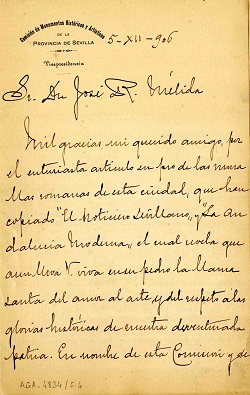 Comisión de Monumentos Históricos y Artísticos
DE LA
PROVINCIA DE SEVILLA
Vicepresidencia
5-XII-906
Sr. Dn José R. Mélida
Mil gracias, mi querido amigo, por
el entusiasta articulo en pro de las mura
llas romanas de esta ciudad, que han
copiado "El Noticiero Sevillano" y "La An
dalucia Moderna" el cual revela que
aun lleva V. viva en su pecho la llama
santa del amor al arte, y del respeto a las
glorias históricas de nuestra desventurada
patria. En nombre de esta Comision y de
AGA, 4834/54